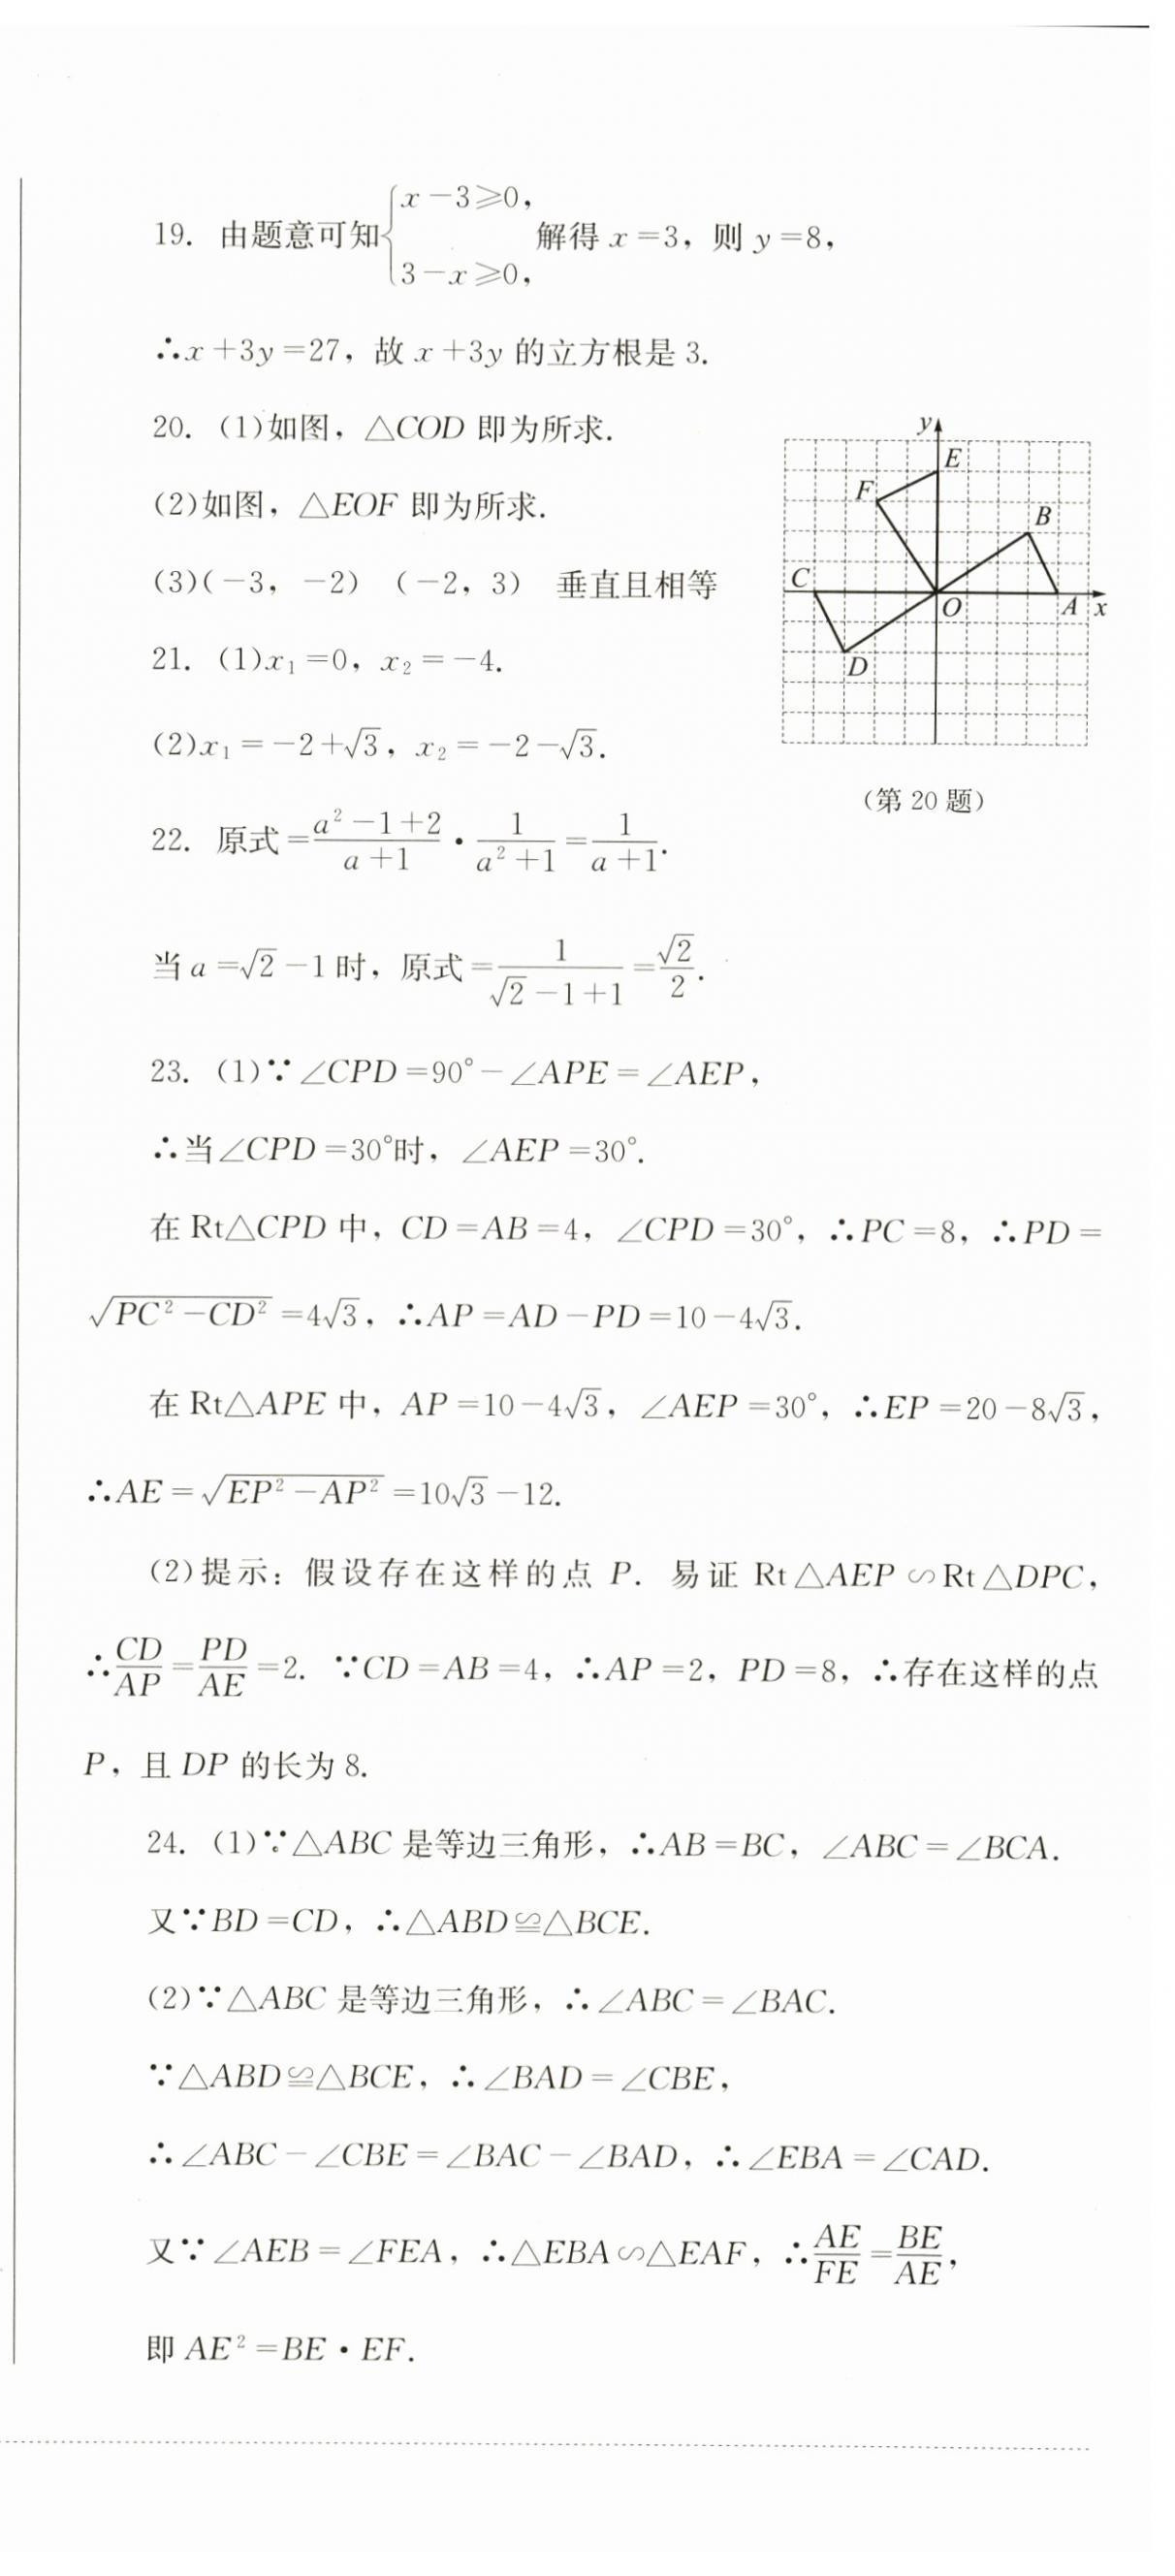 19. 由题意可知{x-3≥0, 3-x≥0, 解得 x=3，则 y=8，
∴x+3y=27，故 x+3y 的立方根是 3.
20. (1)如图，△COD 即为所求.
(2)如图，△EOF 即为所求.
(3)(-3，-2) (-2，3) 垂直且相等
y
E
F
B
C
O
A
x
D
(第 20 题)
21. (1)x₁=0，x₂=-4.
(2)x₁=-2+√3，x₂=-2-√3.
22. 原式=(a²-1+2)/(a+1)·1/(a²+1)=1/(a+1).
当 a=√2-1 时，原式=1/(√2-1+1)=√2/2.
23. (1)∵∠CPD=90°-∠APE=∠AEP，
∴当∠CPD=30°时，∠AEP=30°.
在 Rt△CPD 中，CD=AB=4，∠CPD=30°，∴PC=8，∴PD=
√(PC²-CD²)=4√3，∴AP=AD-PD=10-4√3.
在 Rt△APE 中，AP=10-4√3，∠AEP=30°，∴EP=20-8√3，
∴AE=√(EP²-AP²)=10√3-12.
(2)提示：假设存在这样的点 P. 易证 Rt△AEP∽Rt△DPC，
∴CD/AP=PD/AE=2. ∵CD=AB=4，∴AP=2，PD=8，∴存在这样的点
P，且 DP 的长为 8.
24. (1)∵△ABC 是等边三角形，∴AB=BC，∠ABC=∠BCA.
又∵BD=CD，∴△ABD≌△BCE.
(2)∵△ABC 是等边三角形，∴∠ABC=∠BAC.
∵△ABD≌△BCE，∴∠BAD=∠CBE，
∴∠ABC-∠CBE=∠BAC-∠BAD，∴∠EBA=∠CAD.
又∵∠AEB=∠FEA，∴△EBA∽△EAF，∴AE/FE=BE/AE，
即 AE²=BE·EF.